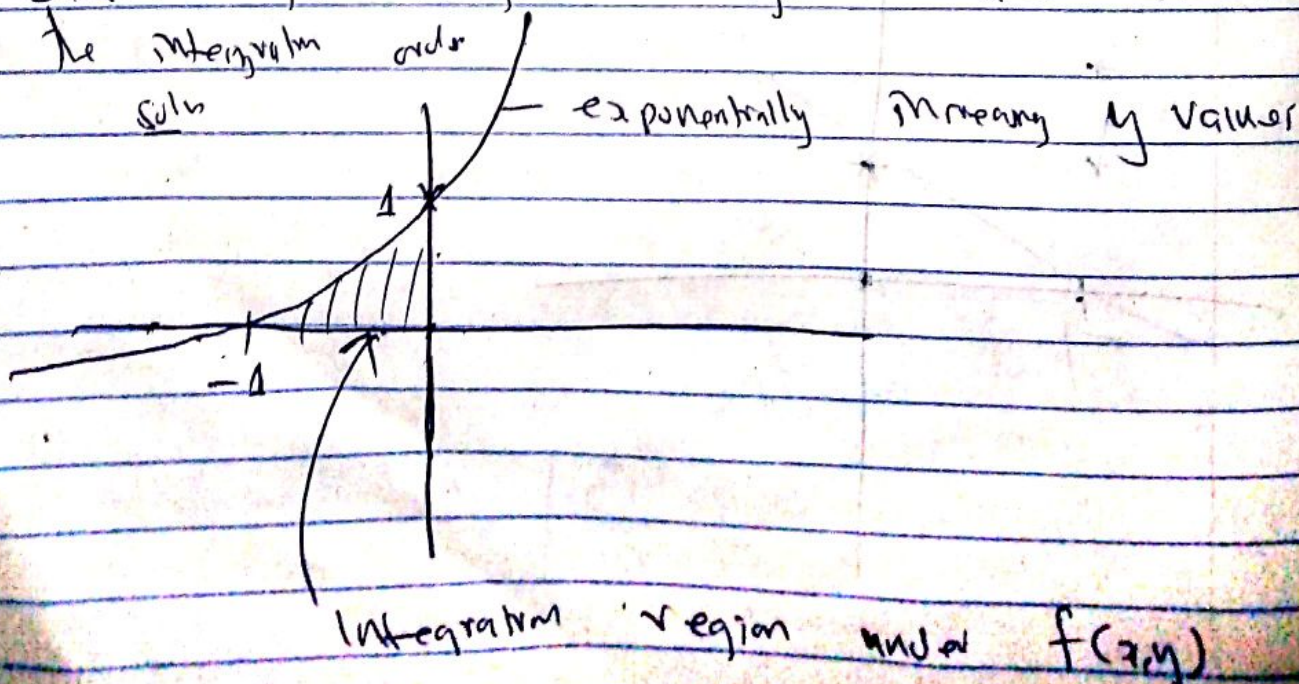 the integration order
soln
exponentially increasing y values
1
-1
Integration region under f(x,y)